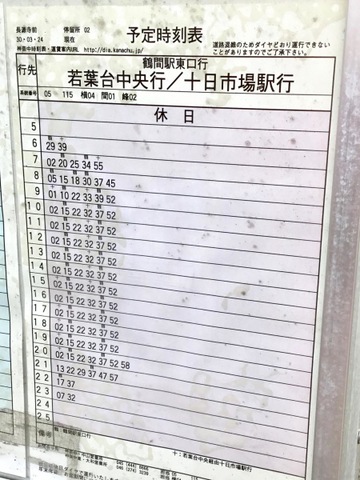 長源寺前 停留所 02
30・03・24 現在
予定時刻表
神奈中時刻表・運賃案内URL http://dia.kanachu.jp/
道路混雑のためダイヤどおり運行できない
ことがありますのでご了承下さい。
行先
鶴間駅東口行
若葉台中央行／十日市場駅行
系統番号 05 115 横04 間01 峰02
休日
5
6 29 39
7 02 20 25 34 55
8 05 15 18 30 37 45
9 01 10 22 33 39 52
10 02 15 22 32 37 52
11 02 15 22 32 37 52
12 02 15 22 32 37 52
13 02 15 22 32 37 52
14 02 15 22 32 37 52
15 02 15 22 32 37 52
16 02 15 22 32 37 52
17 02 15 22 32 37 52
18 02 15 22 32 37 52
19 02 15 22 32 37 52
20 02 15 22 32 37 52 58
21 13 22 29 37 47 57
22 17 37
23 07 32
24
25
備考 鶴間駅東口行
十：若葉台中央経由十日市場駅行